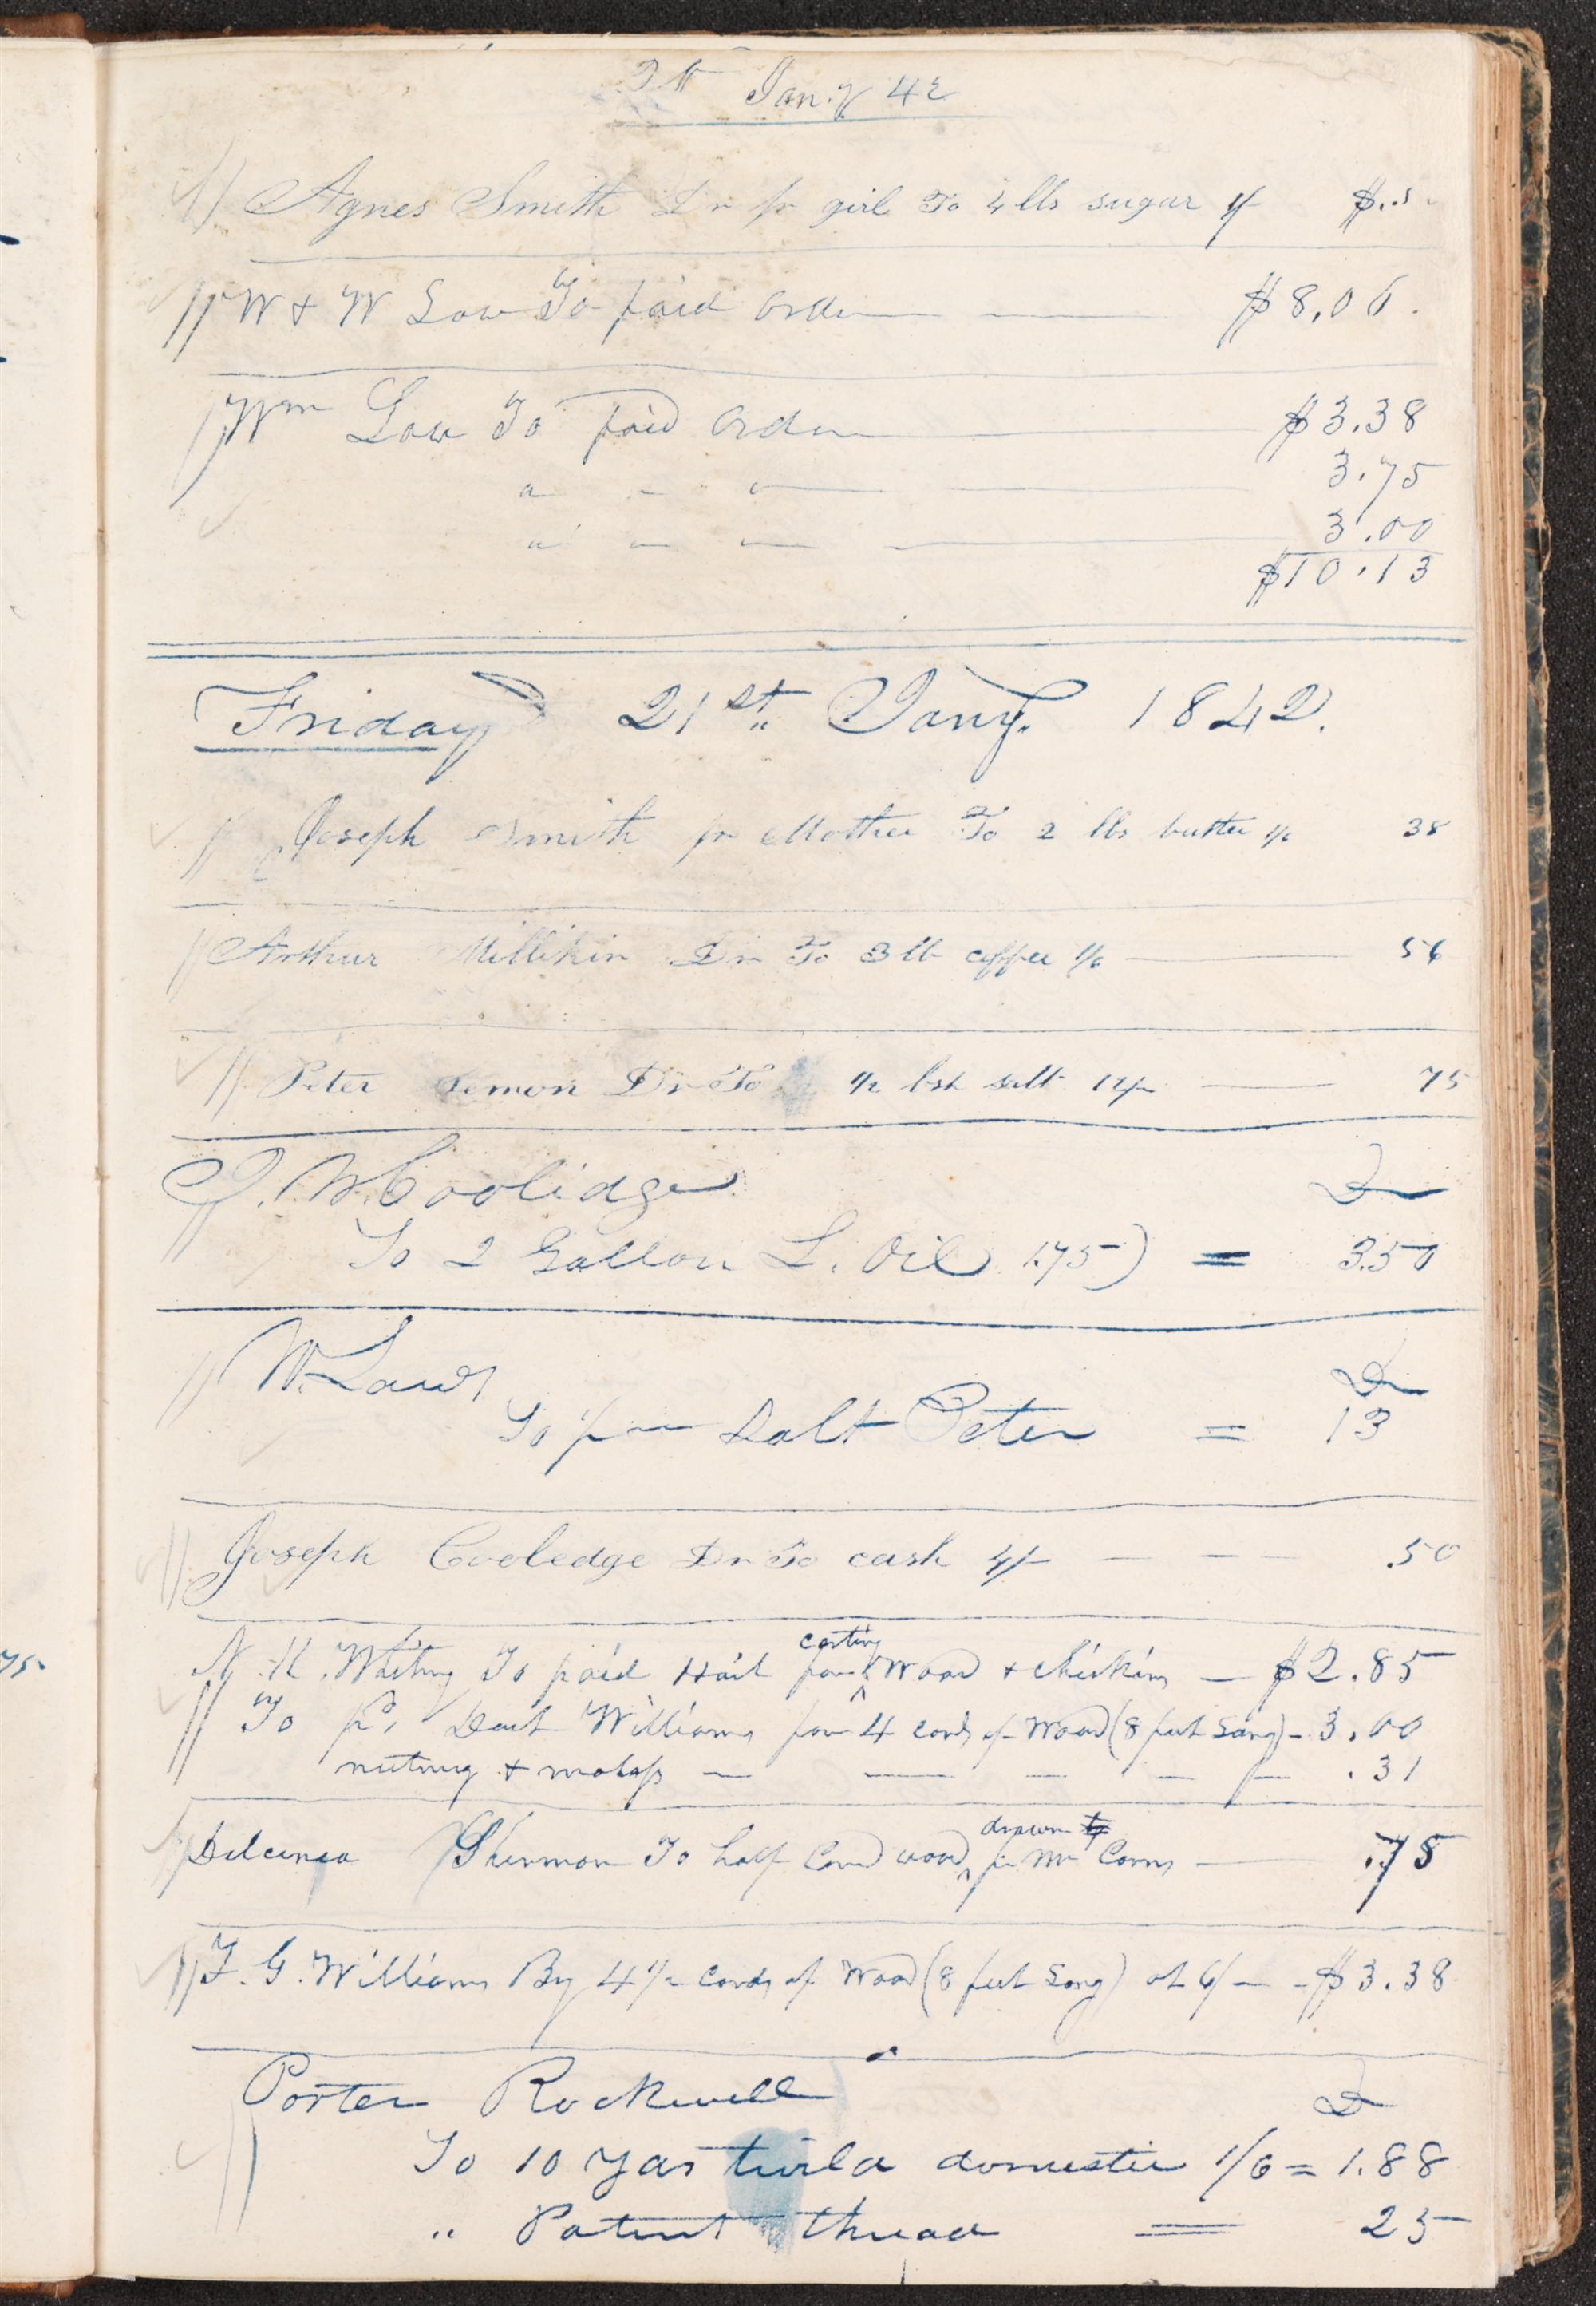 Jan.y 42
Agnes Smith Dr pr girl To 4 lbs sugar 1/ $..5
W & W Law To paid Order $8,06.
Wm Law To paid Order $3.38
" " " 3.75
" " " 3.00
$10.13
Friday 21st Jany. 1842.
Joseph Smith pr Mother To 2 lbs butter 1/6 38
Arthur Millikin Dr To 3 lb coffee 1/6 56
Peter Lemon Dr To 1/2 bsh salt 12/ 75
J. W. Coolidge Dr
To 2 Gallon L. Oil 1.75) = 3.50
W. Law Dr
To Salt Peter = 13
Joseph Cooledge Dr To cash 4/- .50
N. K. Whitney To paid for carting Wood & chickins $2.85
To pd. Williams for 4 cords of Wood (8 feet Long) 3.00
nutmeg & molass .31
Delcena Shermon To half Cord wood drawn pr Mr Corns .75
F. G. Williams By 4 1/2 cords of Wood (8 feet Long) at 6/ $3.38
Porter Rockwell Dr
To 10 Yds twild domestic 1/6 = 1.88
" Patent thread = 25
75